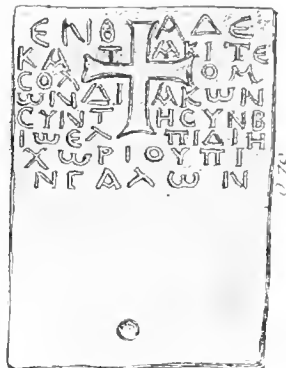 ЄΝΘ ΑΔЄ
ΚΑΤ ΑΚΙΤЄ
ϹΟΛ ΟΜ
ωΝΔΙ ΑΚωΝ
ϹΥΝΤ ΗϹΥΝΒ
ΙωЄΛ ΠΙΔΙΗ
ΧωΡΙΟΥΠΙ
ΝΓΑΛωΝ